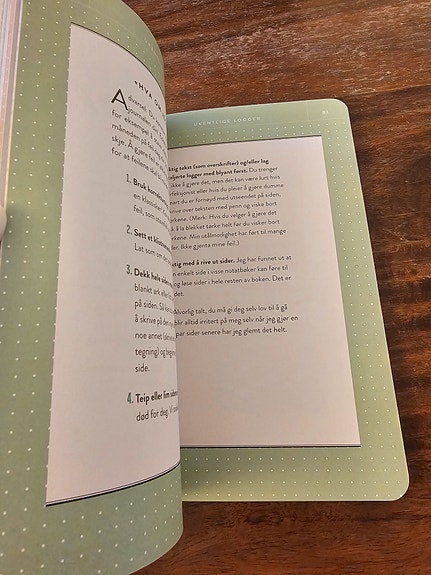 "HVA OM
Advarsel: Du
journalen din
for eksempel å
måneden på kal
skje. Å gjøre fei
for at feilene skal
1. Bruk korrektur
en klassiker
feil, som stav
2. Sett et klistremer
Lat som om det
3. Dekk hele siden
blankt ark eller
på siden. Så kan
å skrive på den
noe annet (skriv en
tegning) og begynn
side.
4. Teip eller lim sidene
død for deg. Vi snakk
UKENTLIGE LOGGER
91
ktig tekst (som overskrifter) og/eller lag
aljerte logger med blyant først. Du trenger
ikke å gjøre det, men det kan være lurt hvis
erfeksjonist eller hvis du pleier å gjøre dumme
nart du er fornøyd med utseendet på siden,
rive over teksten med penn og viske bort
erkene. (Merk: Hvis du velger å gjøre det
k å la blekket tørke helt før du visker bort
erkene. Min utålmodighet har ført til mange
er. Ikke gjenta mine feil.)
ktig med å rive ut sider. Jeg har funnet ut at
en enkelt side i visse notatbøker kan føre til
og løse sider i hele resten av boken. Det er
det.
Alvorlig talt, du må gi deg selv lov til å gå
blir alltid irritert på meg selv når jeg gjør en
par sider senere har jeg glemt det helt.